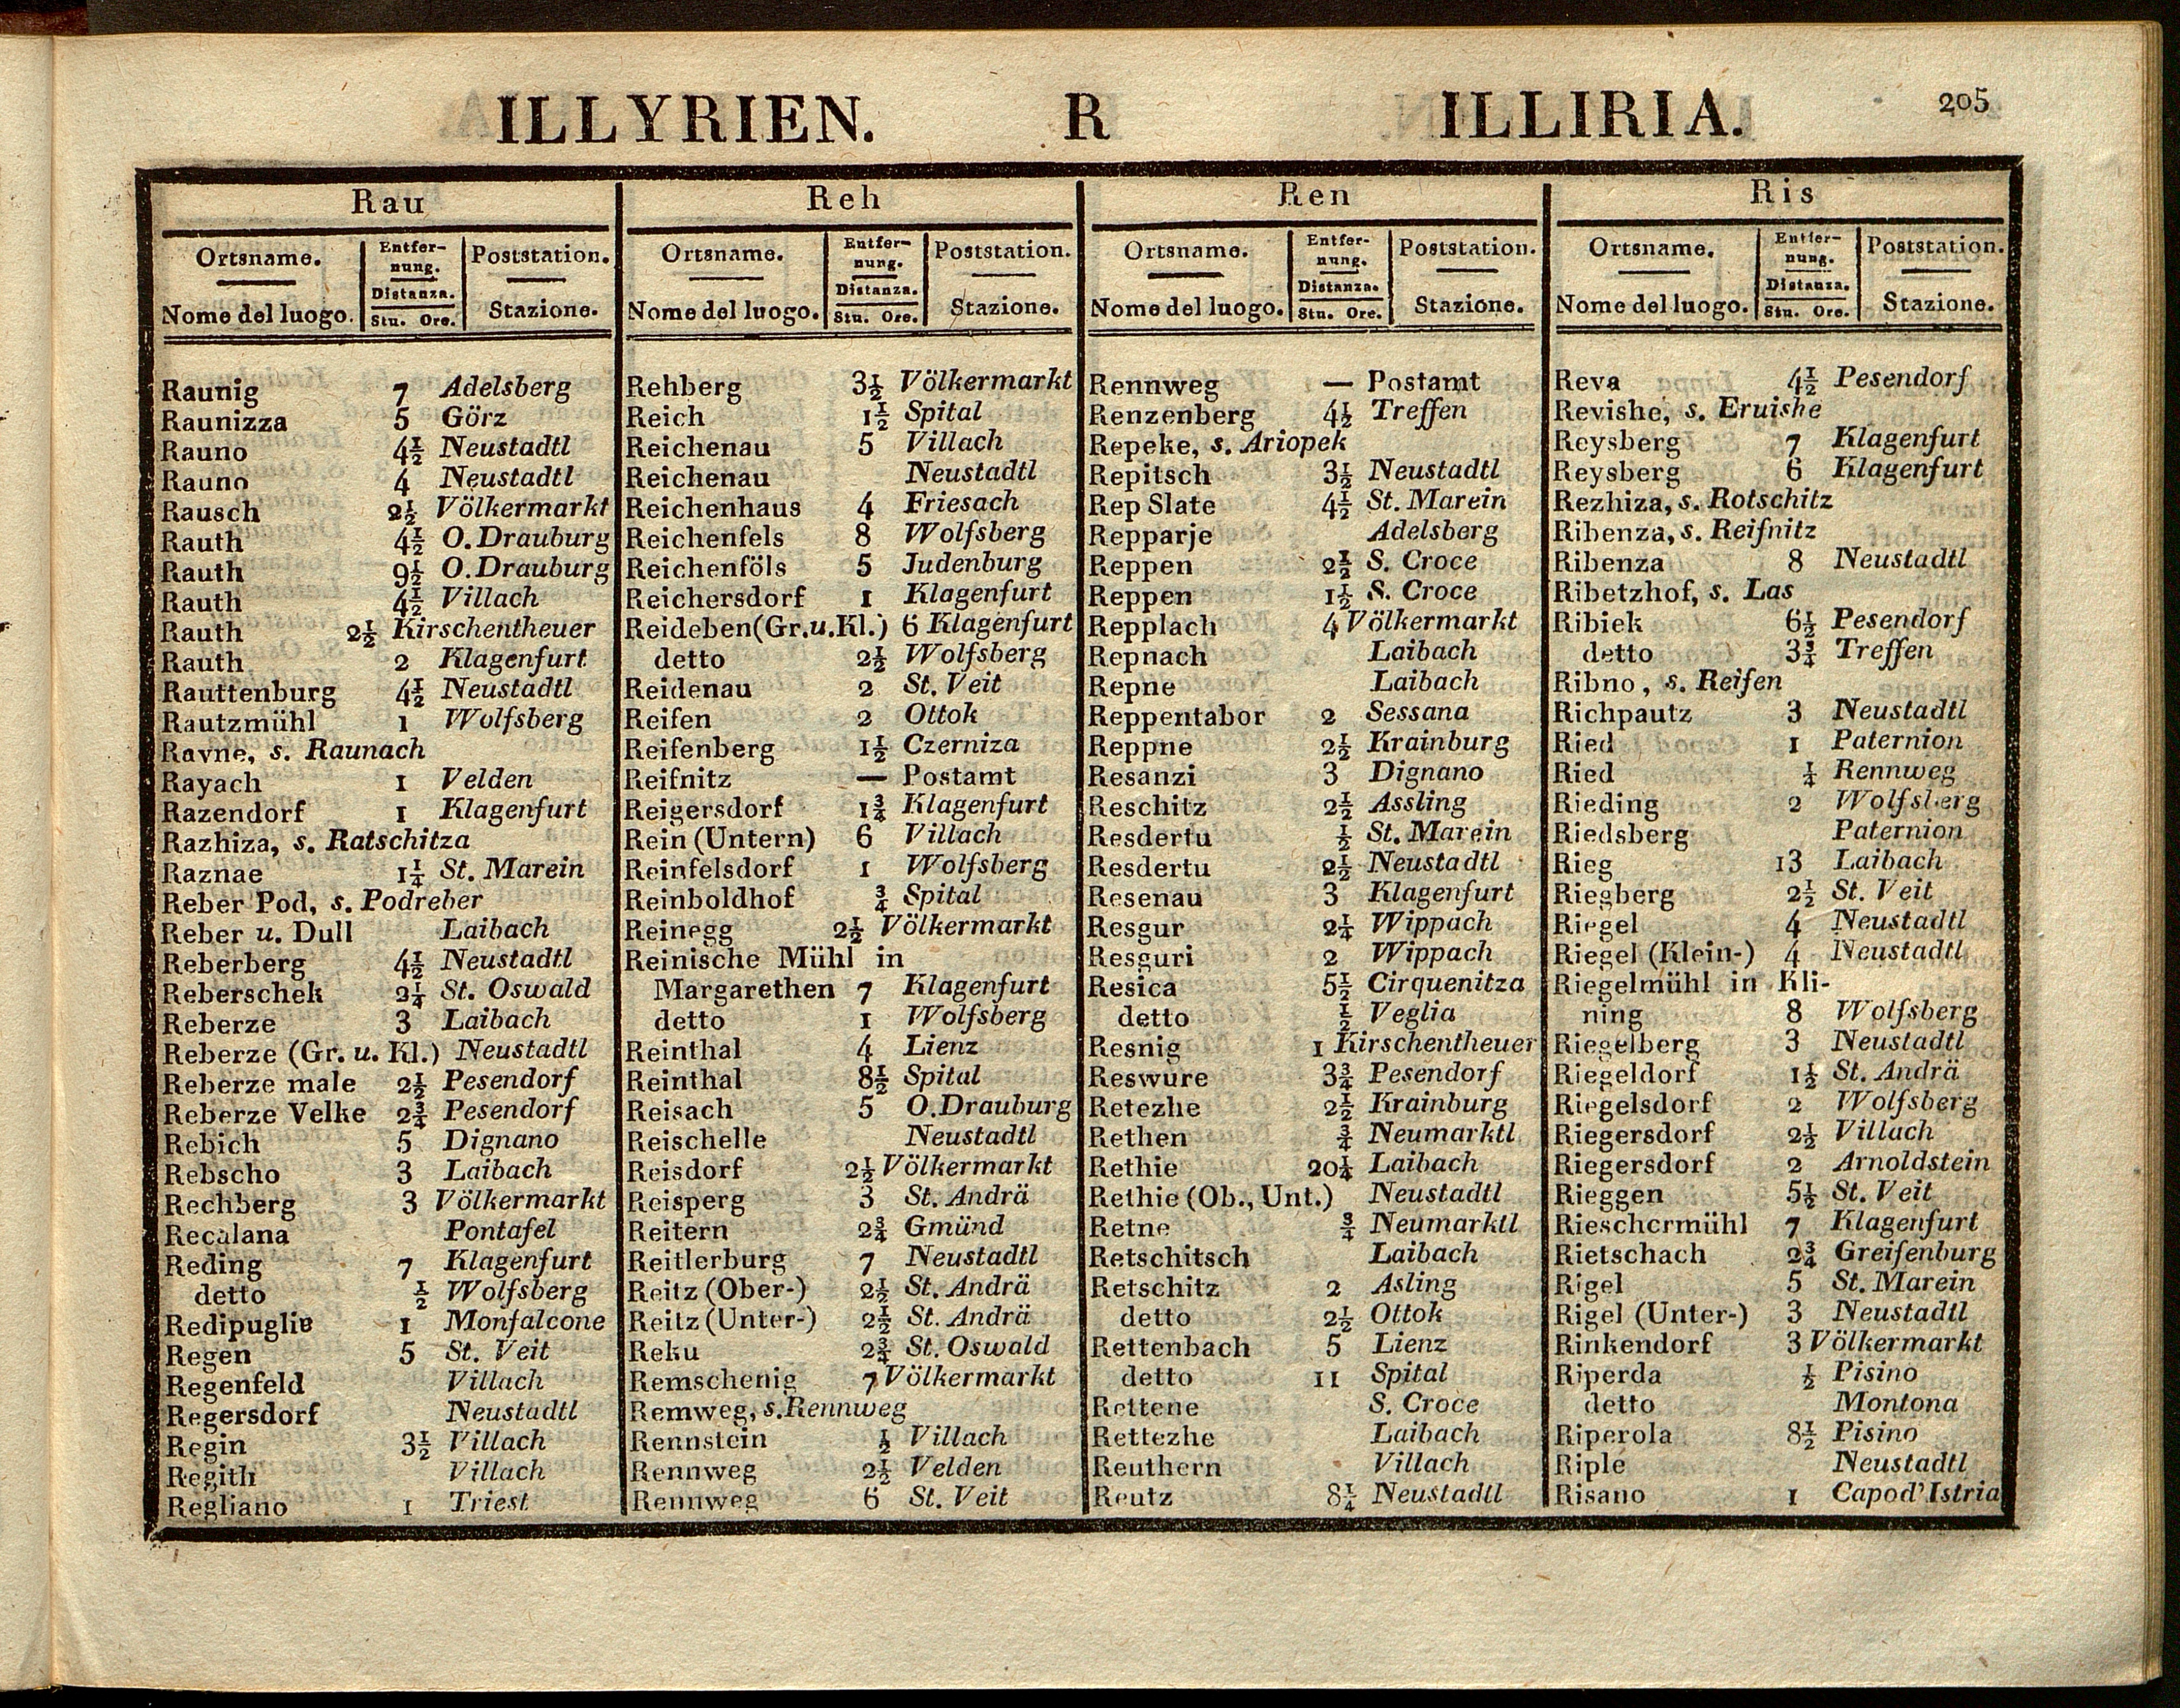 ILLYRIEN. R ILLIRIA. 205
Rau
Ortsname. Entfernung. Poststation.
Nome del luogo. Distanza. Stu. Ore. Stazione.
Raunig 7 Adelsberg
Raunizza 5 Görz
Rauno 4½ Neustadtl
Rauno 4 Neustadtl
Rausch 2½ Völkermarkt
Rauth 4½ O. Drauburg
Rauth 9½ O. Drauburg
Rauth 4½ Villach
Rauth 2½ Kirschentheuer
Rauth 2 Klagenfurt
Rauttenburg 4½ Neustadtl
Rautzmühl 1 Wolfsberg
Ravne, s. Raunach
Rayach 1 Velden
Razendorf 1 Klagenfurt
Razhiza, s. Ratschitza
Raznae 1¼ St. Marein
Reber Pod, s. Podreber
Reber u. Dull Laibach
Reberberg 4½ Neustadtl
Reberschek 2¼ St. Oswald
Reberze 3 Laibach
Reberze (Gr. u. Kl.) Neustadtl
Reberze male 2½ Pesendorf
Reberze Velke 2¾ Pesendorf
Rebich 5 Dignano
Rebscho 3 Laibach
Rechberg 3 Völkermarkt
Recalana Pontafel
Reding 7 Klagenfurt
detto ½ Wolfsberg
Redipuglie 1 Monfalcone
Regen 5 St. Veit
Regenfeld Villach
Regersdorf Neustadtl
Regin 3½ Villach
Regith Villach
Regliano 1 Triest
Reh
Ortsname. Entfernung. Poststation.
Nome del luogo. Distanza. Stu. Ore. Stazione.
Rehberg 3½ Völkermarkt
Reich 1½ Spital
Reichenau 5 Villach
Reichenau Neustadtl
Reichenhaus 4 Friesach
Reichenfels 8 Wolfsberg
Reichenföls 5 Judenburg
Reichersdorf 1 Klagenfurt
Reideben (Gr. u. Kl.) 6 Klagenfurt
detto 2½ Wolfsberg
Reidenau 2 St. Veit
Reifen 2 Ottok
Reifenberg 1½ Czerniza
Reifnitz — Postamt
Reigersdorf 1¾ Klagenfurt
Rein (Untern) 6 Villach
Reinfelsdorf 1 Wolfsberg
Reinboldhof ¾ Spital
Reinegg 2½ Völkermarkt
Reinische Mühl in
Margarethen 7 Klagenfurt
detto 1 Wolfsberg
Reinthal 4 Lienz
Reinthal 8½ Spital
Reisach 5 O. Drauburg
Reischelle Neustadtl
Reisdorf 2½ Völkermarkt
Reisperg 3 St. Andrä
Reitern 2¾ Gmünd
Reitlerburg 7 Neustadtl
Reitz (Ober-) 2½ St. Andrä
Reitz (Unter-) 2½ St. Andrä
Reku 2¾ St. Oswald
Remschenig 7 Völkermarkt
Remweg, s. Rennweg
Rennstein ½ Villach
Rennweg 2½ Velden
Rennweg 6 St. Veit
Ren
Ortsname. Entfernung. Poststation.
Nome del luogo. Distanza. Stu. Ore. Stazione.
Rennweg — Postamt
Renzenberg 4½ Treffen
Repeke, s. Ariopek
Repitsch 3½ Neustadtl
Rep Slate 4½ St. Marein
Repparje Adelsberg
Reppen 2½ S. Croce
Reppen 1½ S. Croce
Repplach 4 Völkermarkt
Repnach Laibach
Repne Laibach
Reppentabor 2 Sessana
Reppne 2½ Krainburg
Resanzi 3 Dignano
Reschitz 2½ Assling
Resdertu ½ St. Marein
Resdertu 2½ Neustadtl
Resenau 3 Klagenfurt
Resgur 2¼ Wippach
Resguri 2 Wippach
Resica 5½ Cirquenitza
detto ½ Veglia
Resnig 1 Kirschentheuer
Reswure 3¾ Pesendorf
Retezhe 2½ Krainburg
Rethen ¾ Neumarktl
Rethie 20¼ Laibach
Rethie (Ob., Unt.) Neustadtl
Retne ¾ Neumarktl
Retschitsch Laibach
Retschitz 2 Asling
detto 2½ Ottok
Rettenbach 5 Lienz
detto 11 Spital
Rettene S. Croce
Rettezhe Laibach
Reuthern Villach
Reutz 8¼ Neustadtl
Ris
Ortsname. Entfernung. Poststation.
Nome del luogo. Distanza. Stu. Ore. Stazione.
Reva 4½ Pesendorf
Revishe, s. Eruishe
Reysberg 7 Klagenfurt
Reysberg 6 Klagenfurt
Rezhiza, s. Rotschitz
Ribenza, s. Reifnitz
Ribenza 8 Neustadtl
Ribetzhof, s. Las
Ribiek 6½ Pesendorf
detto 3¾ Treffen
Ribno, s. Reifen
Richpautz 3 Neustadtl
Ried 1 Paternion
Ried ¼ Rennweg
Rieding 2 Wolfsberg
Riedsberg Paternion
Rieg 13 Laibach
Riegberg 2½ St. Veit
Riegel 4 Neustadtl
Riegel (Klein-) 4 Neustadtl
Riegelmühl in Kli-
ning 8 Wolfsberg
Riegelberg 3 Neustadtl
Riegeldorf 1½ St. Andrä
Riegelsdorf 2 Wolfsberg
Riegersdorf 2½ Villach
Riegersdorf 2 Arnoldstein
Rieggen 5½ St. Veit
Rieschermühl 7 Klagenfurt
Rietschach 2¾ Greifenburg
Rigel 5 St. Marein
Rigel (Unter-) 3 Neustadtl
Rinkendorf 3 Völkermarkt
Riperda ½ Pisino
detto Montona
Riperola 8½ Pisino
Riple Neustadtl
Risano 1 Capod'Istria